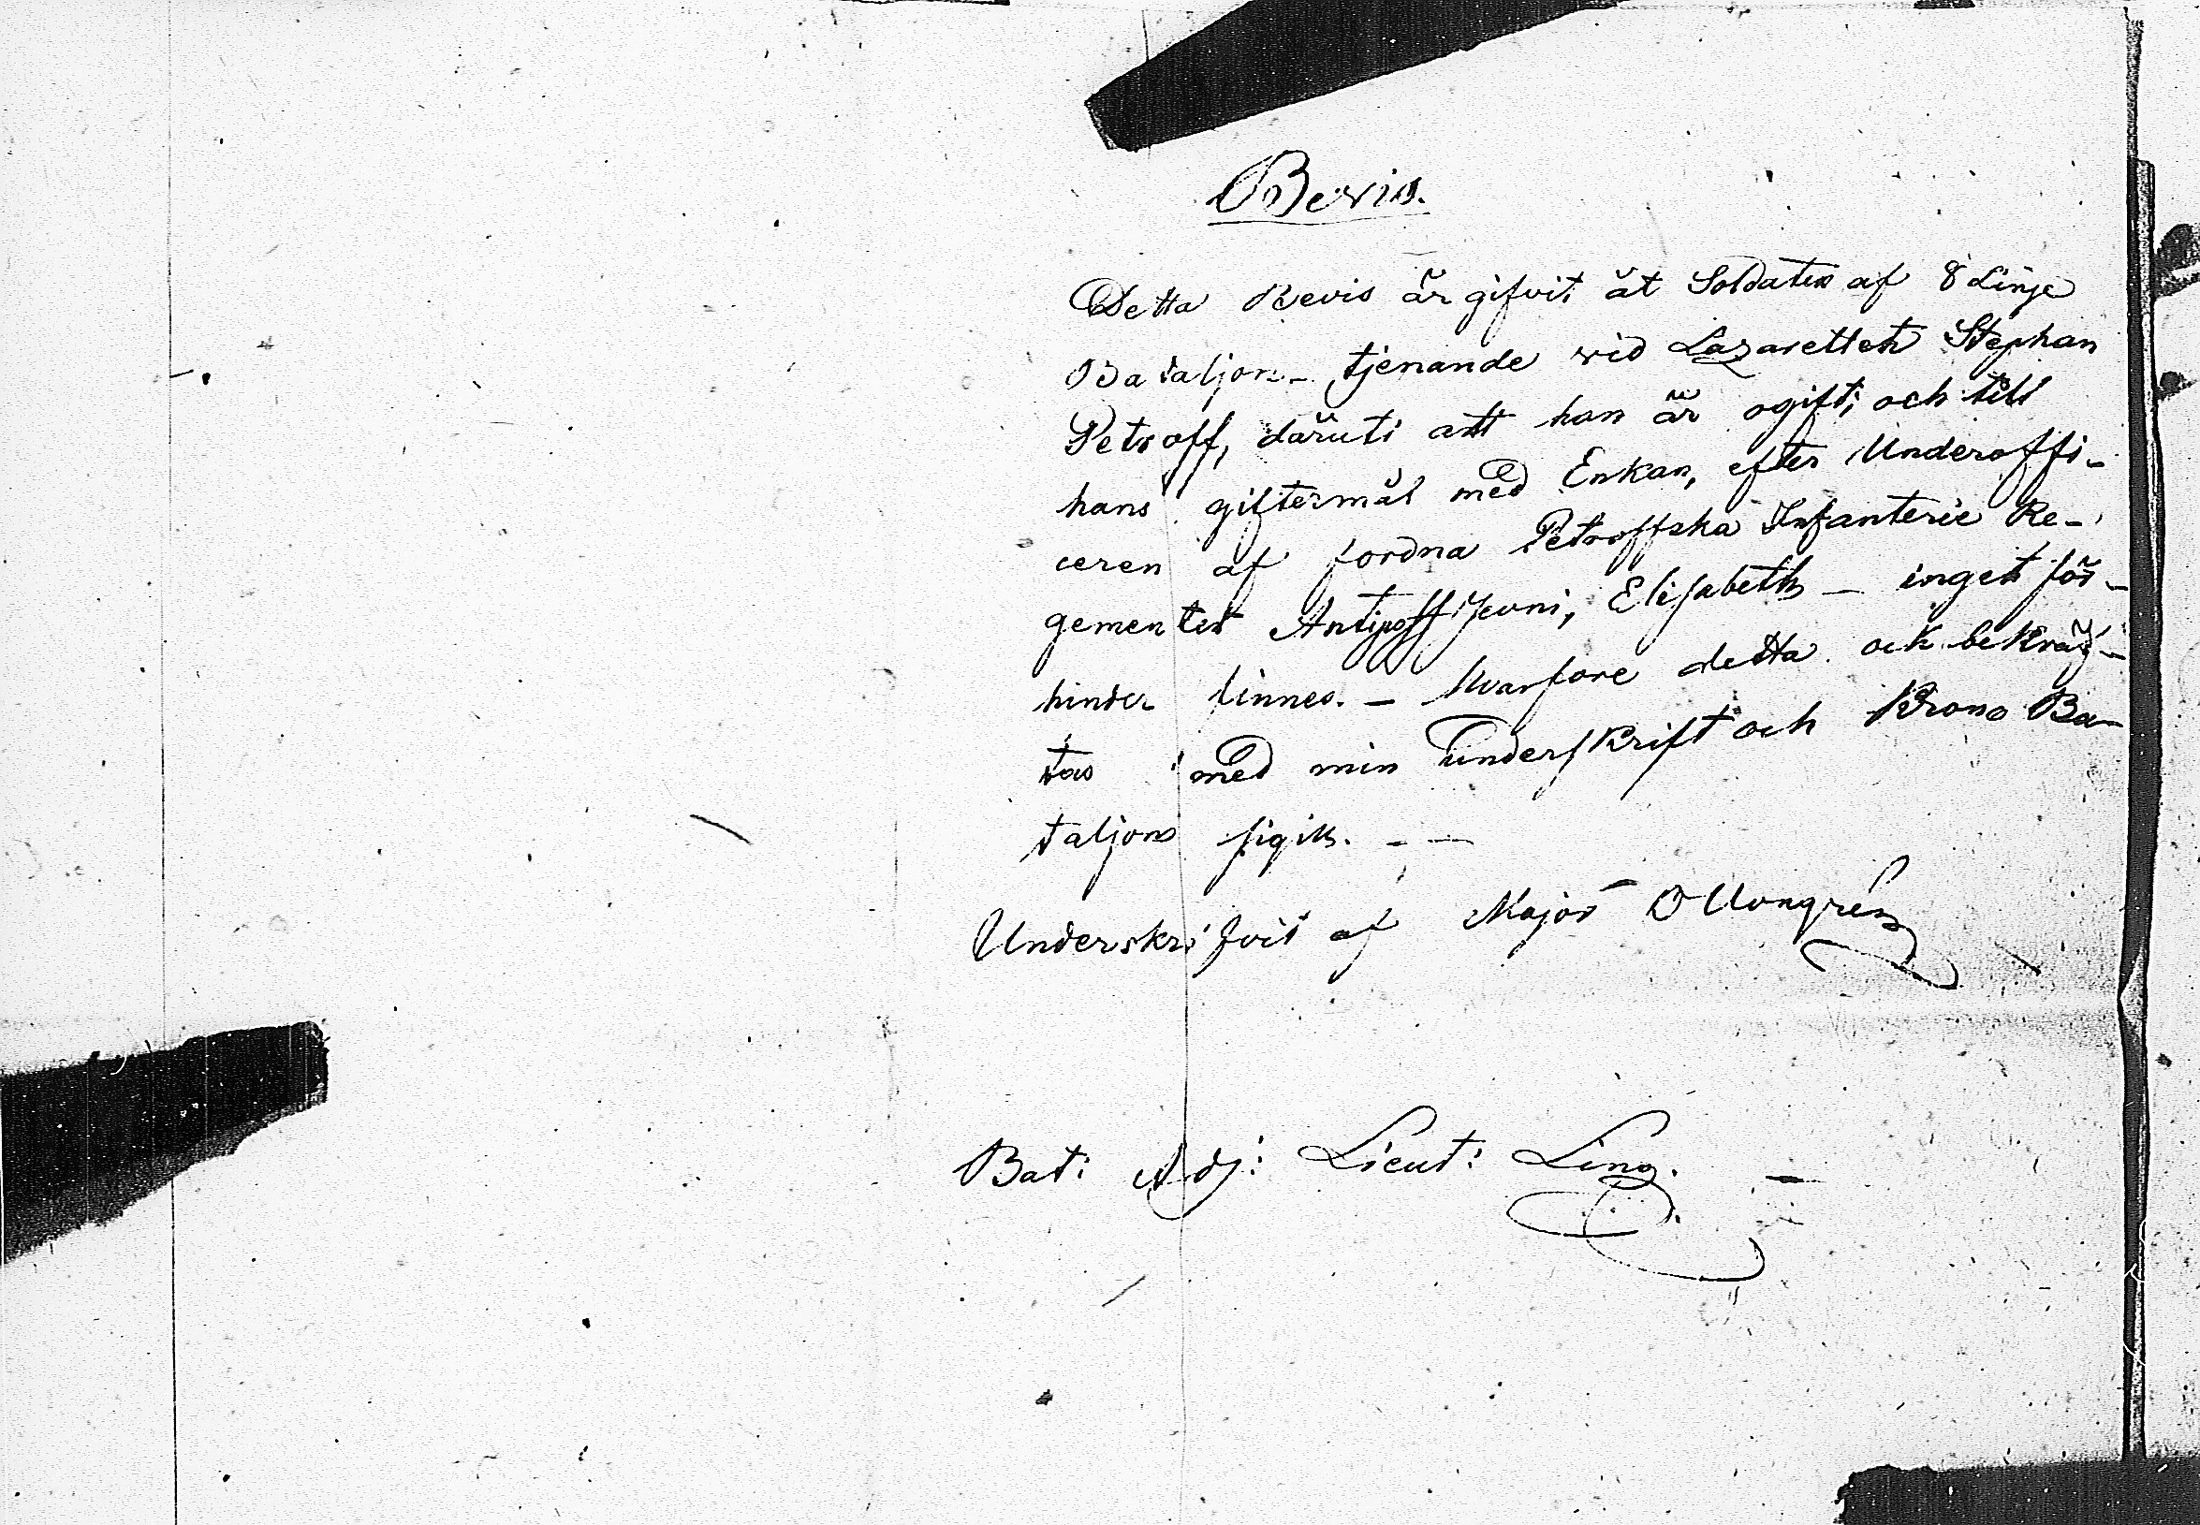 Bevis.
Detta Bevis är gifvit åt Soldaten af 8 Linje
Bataljon - tjenande vid Lazarettet Stephan
Petroff, däruti att han är ogift; och till
hans giftermål med Enkan, efter Underoffi-
ceren af fordna Petroffska Infanterie Re-
gementet Antipoff Jevni, Elisabeth - inget för-
hinder finnes. - Hvarfore detta ock bekräf-
tas med min underskrift och Krono Ba-
taljons sigill. - -
Underskrifvit af Major
Bat: Adj: Lieut: Ling.